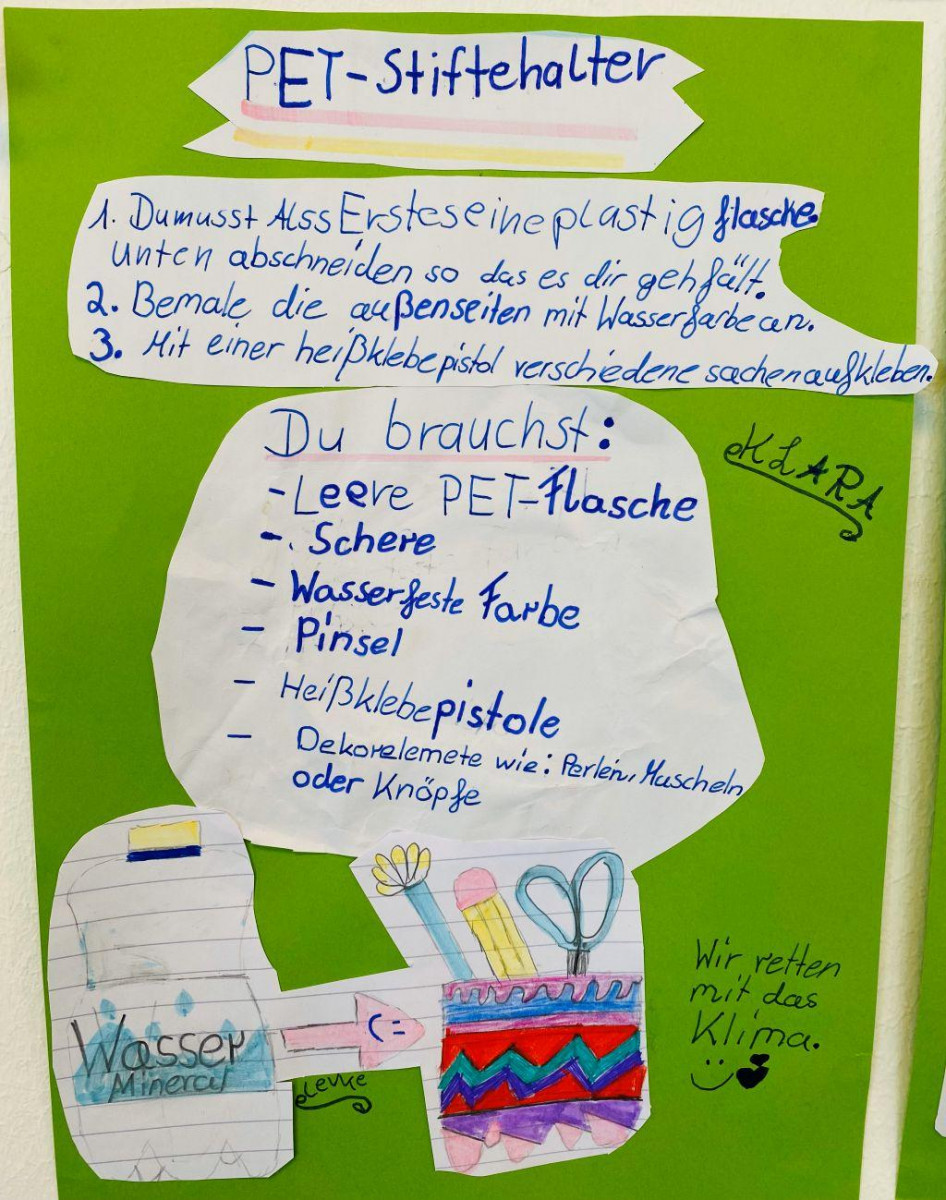 PET-Stiftehalter
1. Dumusst Alss Ersteseineplastig flasche.
unten abschneiden so das es dir gehfält.
2. Bemale die außenseiten mit Wasserfarbe an.
3. Mit einer heißklebepistol verschiedene sachen aufkleben.
Du brauchst:
- Leere PET-Flasche
- Schere
- Wasserfeste Farbe
- Pinsel
- Heißklebepistole
- Dekorelemete wie: Perlen, Muscheln
oder Knöpfe
KLARA
Wasser
Mineral
(=
Wir retten
mit das
Klima.